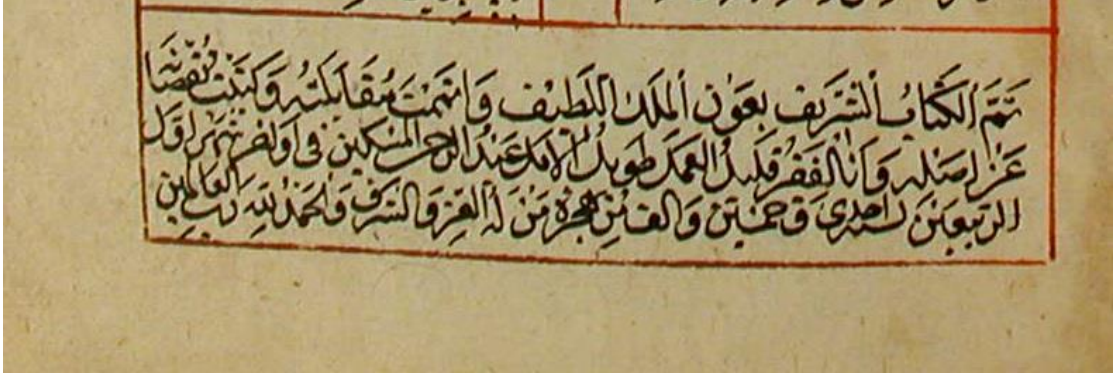 تَمَّ الكتابُ الشَّرِيف بِعَون الملك اللَّطِيف وَاتممتُ مقابلته وَكتبتُ نقصَانه
عَن اصله وَأنا الفقير قليل العمل طويل الامل عبد الرحمن المسكين فى اواخر شهر اول
الربيعين لسنة احدى وخمسين والف من هجرة مَنْ له العز والشرف وَالحمد لله رب العالمين